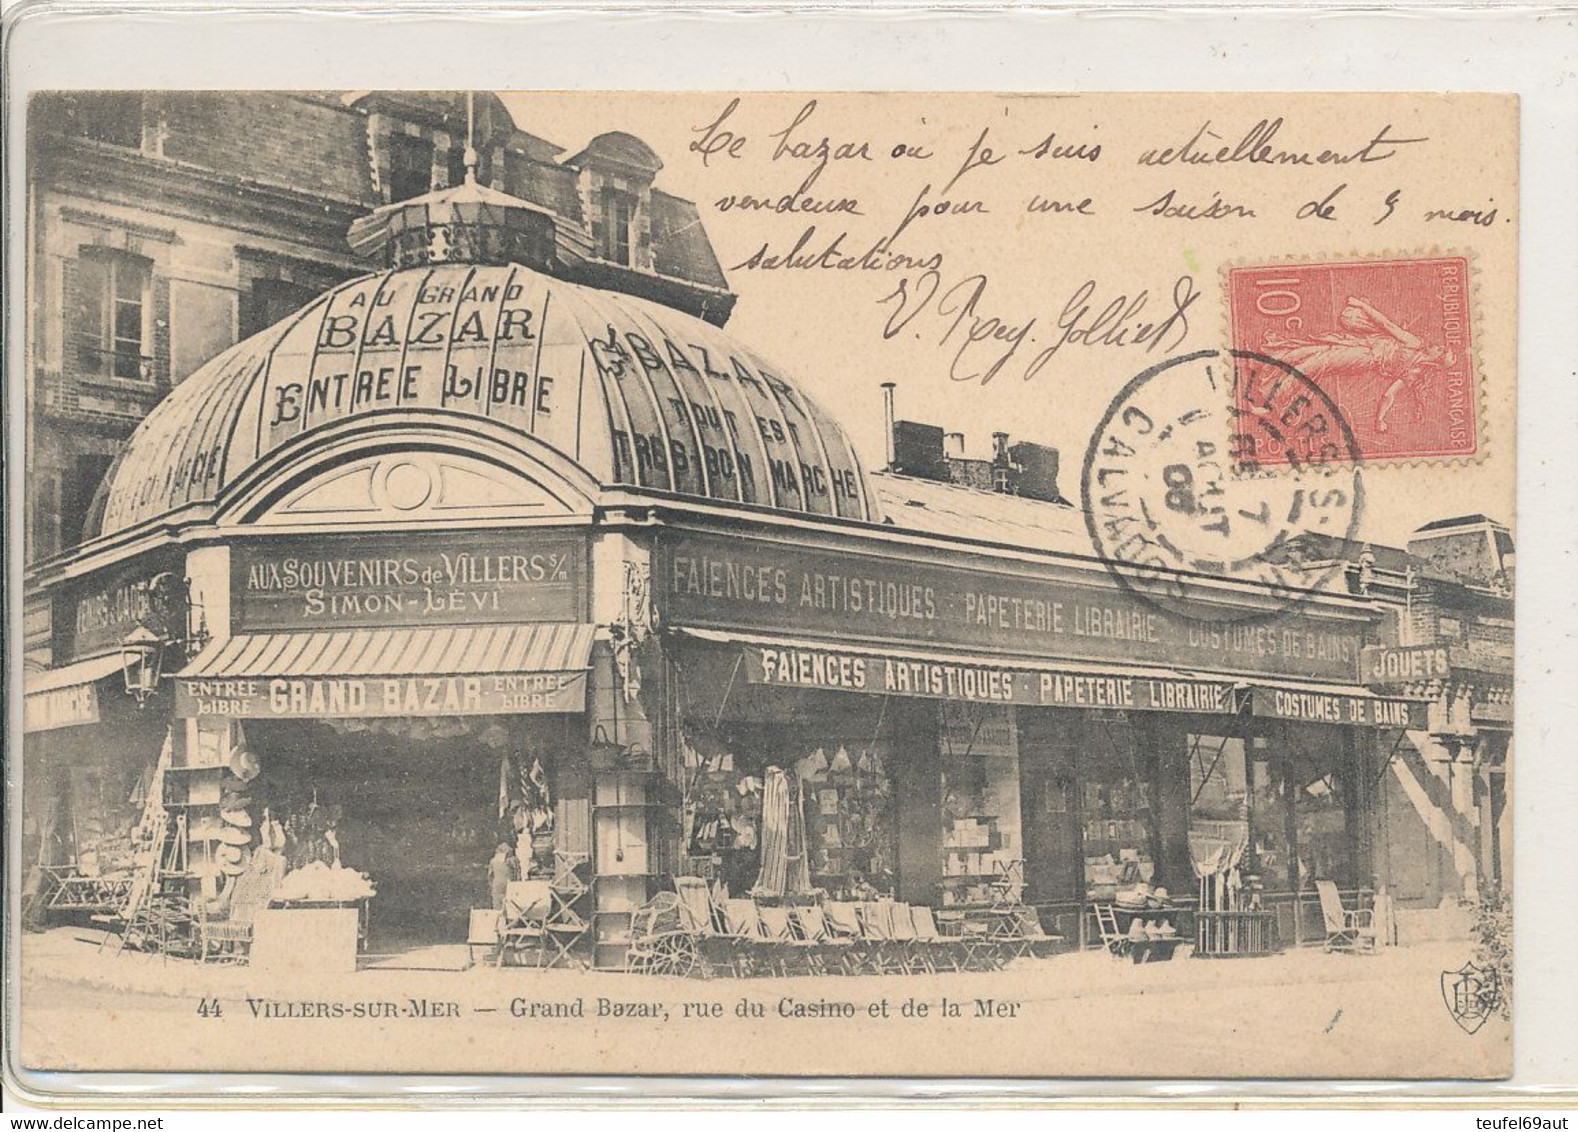 Le bazar où je suis actuellement
vendeuse pour une saison de 5 mois.
salutations
V. Rey. Golliet
10c
REPUBLIQUE FRANÇAISE
POSTES
VILLERS-S-MER
CALVADOS
7
AOUT
05
AU GRAND
BAZAR
ENTREE LIBRE
Gd BAZAR
TOUT EST
TRÈS-BON MARCHÉ
AUX SOUVENIRS de VILLERS s/m
SIMON-LÉVI
FAÏENCES ARTISTIQUES · PAPETERIE LIBRAIRIE · COSTUMES DE BAINS
JOUETS
ENTREE LIBRE GRAND BAZAR ENTREE LIBRE
FAÏENCES ARTISTIQUES · PAPETERIE LIBRAIRIE
COSTUMES DE BAINS
44 VILLERS-SUR-MER — Grand Bazar, rue du Casino et de la Mer
teufel69aut